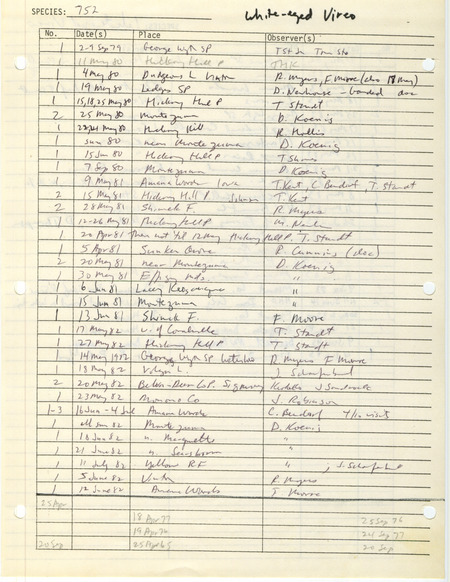 SPECIES: 752 White-eyed Vireo
No. Date(s) Place Observer(s)
1 2-9 Sep 79 George Wyth SP
1 11 May 80 Hickory Hill P THK
1 4 May 80 R. Myers, F Moore (also 18 May)
1 19 May 80 Ledges SP D. Newhouse - banded doc
1 15,18,25 May 80 Hickory Hill P T Staudt
2 25 May 80 Montezuma D. Koenig
1 May 80 Hickory Hill R Hollis
1 Jun 80 near Montezuma D. Koenig
1 15 Jun 80 Hickory Hill P T Shires
1 7 Sep 80 Montezuma D. Koenig
1 9 May 81 Amana Woods Iowa T Kent, C Bendorf, T Staudt
2 15 May 81 Hickory Hill P Johnson T Kent
2 28 May 81 Shimek F. R Myers
1 12-26 May 81 Hickory Hill P
1 20 Apr 81 then not till 12 May Hickory Hill P. T. Staudt
1 5 Apr 81 Sunken Grove R. Cummins (doc)
2 20 May 81 near Montezuma D. Koenig
1 30 May 81 Effigy Mds. "
1 6 Jun 81 Lacey Keosauqua "
1 15 Jun 81 Montezuma "
1 13 Jun 81 Shimek F. F. Moore
1 17 May 82 w. of Coralville T. Staudt
1 27 May 82 Hickory Hill P T. Staudt
1 14 May 1982 George Wyth SP Waterloo R Myers F Moore
1 13 May 82 J. Schaufenbuel
2 20 May 82 J Sandrock
1 23 May 82 Monona Co J. Robinson
1-3 16 Jun - 4 Jul Amana Woods C. Bendorf 4/10 visits
1 all sum 82 Montezuma D. Koenig
1 18 Jun 82 n. Marquette "
1 21 June 82 "
1 11 July 82 Yellow R F " , J. Schaufenbuel
1 5 June 82 Vinton R. Myers
1 12 June 82 Amana Woods T Moore
25 Apr
18 Apr 77 25 Sep 76
19 Apr 76 24 Sep 77
20 Sep 25 Apr 65 20 Sep